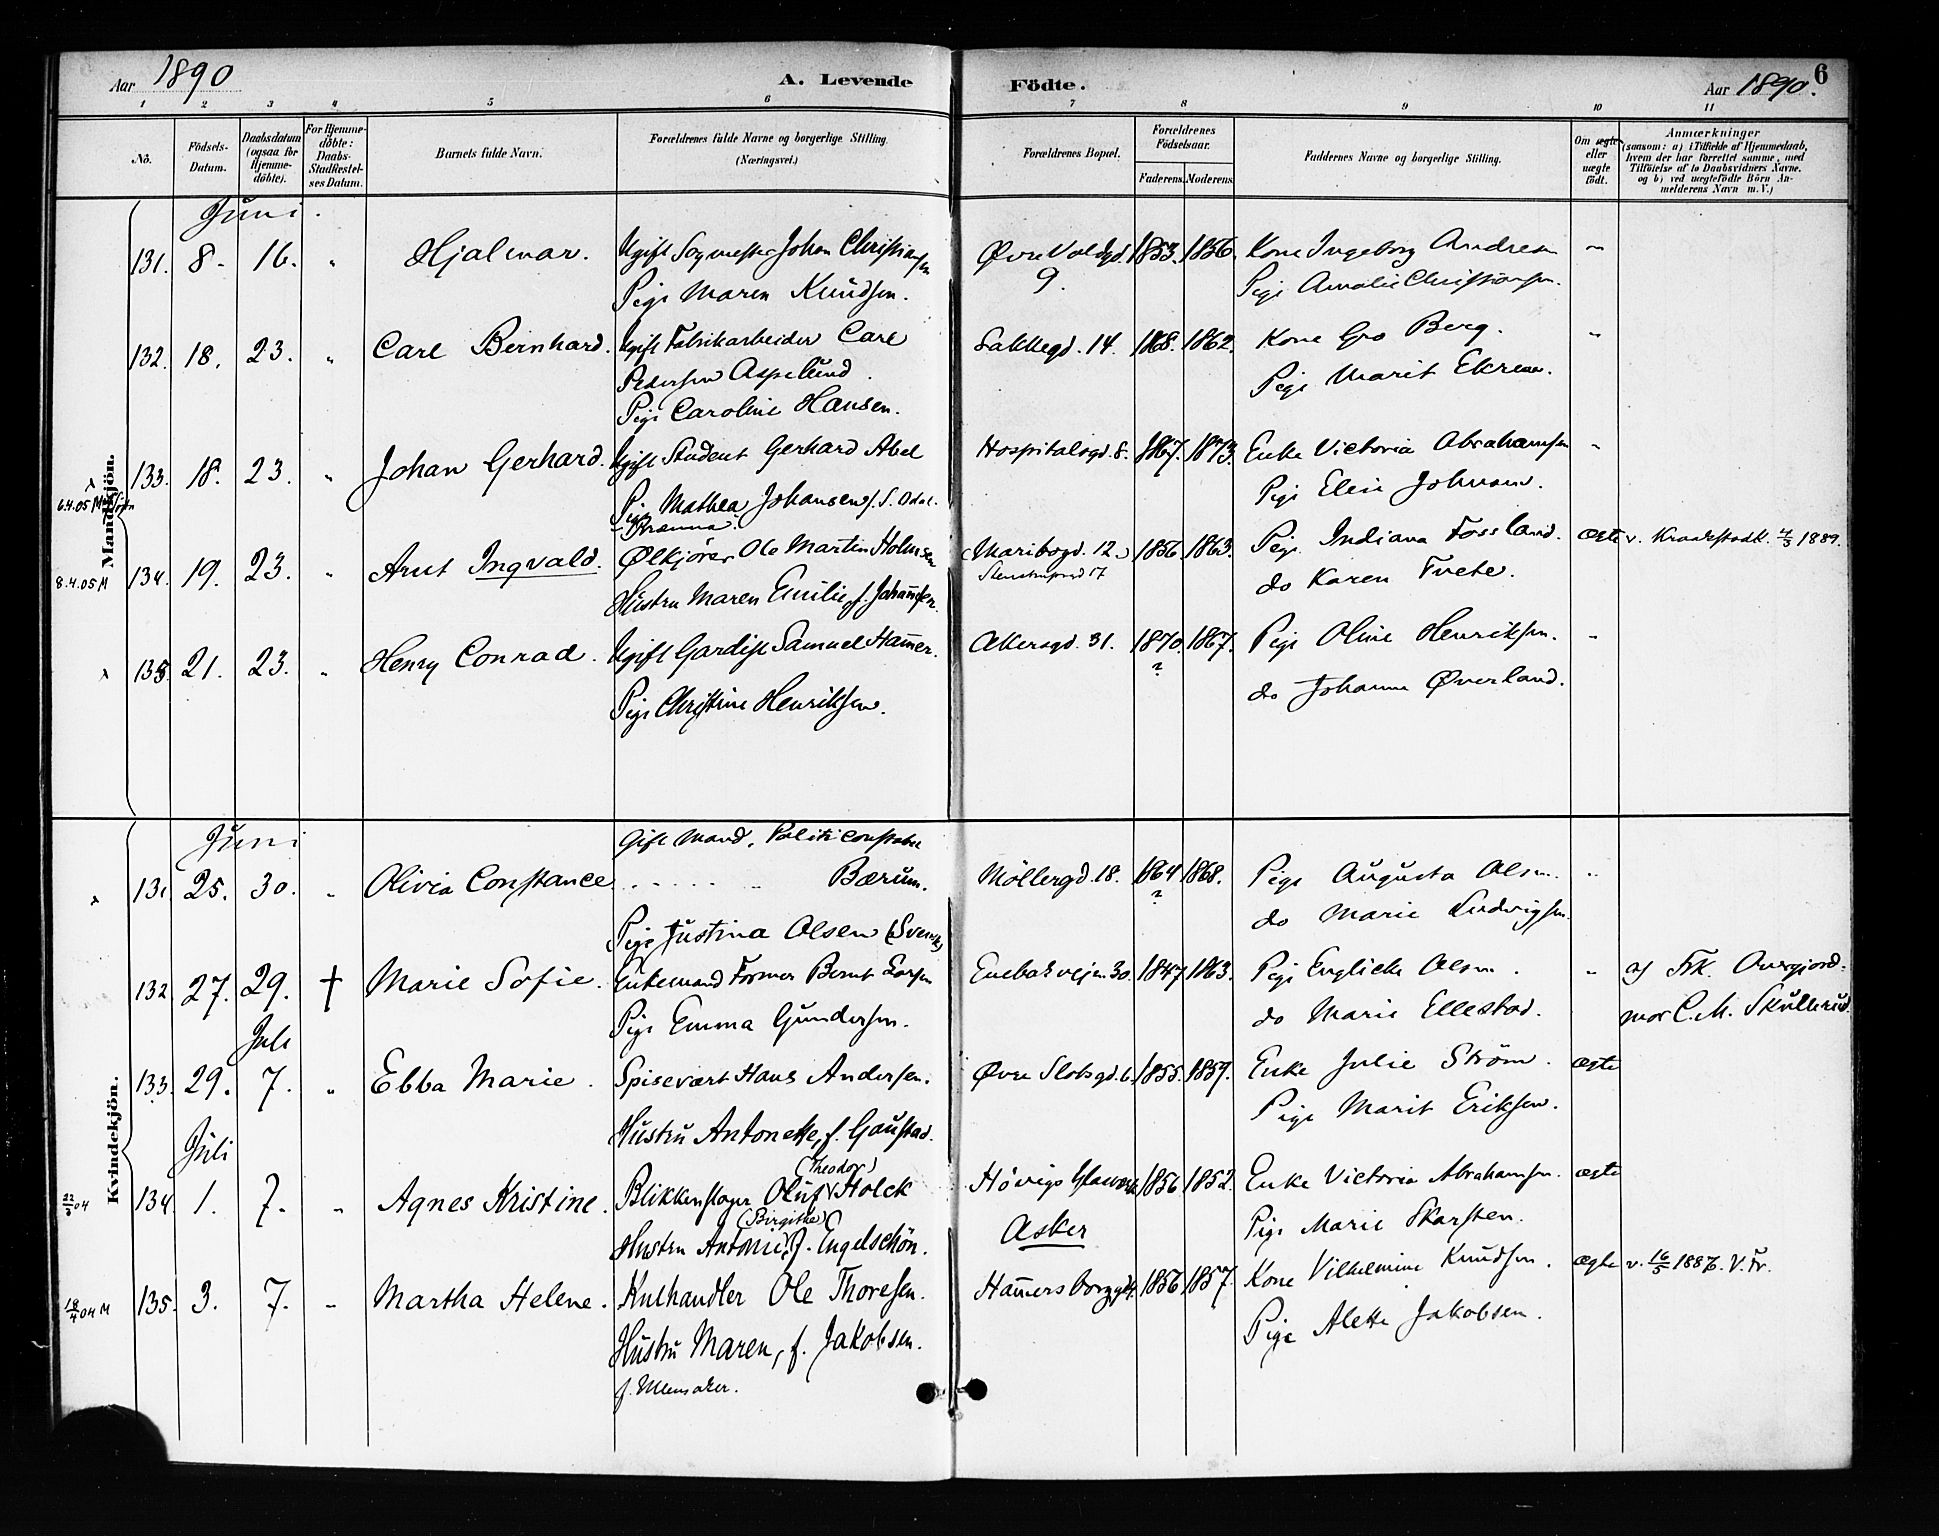 Aar 1890
A. Levende
Födte.
Aar 1890.
6
1 2 3 4 5 6 7 8 9 10 11
No.
Födsels-
Datum.
Daabsdatum
(ogsaa for
Hjemme-
döbte).
For Hjemme-
döbte:
Daabs-
Stadfæstel-
ses Datum.
Barnets fulde Navn.
Forældrenes fulde Navne og borgerlige Stilling
(Næringsvei.)
Forældrenes Bopæl.
Forældrenes
Födselsaar.
Faderens. Moderens.
Faddernes Navne og borgerlige Stilling.
Om ægte
eller
uægte
födt.
Anmærkninger
(saasom: a) i Tilfælde af Hjemmedaab,
hvem der har forrettet samme, med
Tilföielse af to Daabsvidners Navne.
og b) ved uægtefödte Börn An-
melderens Navn m. V.)
Mandkjön.
Juni.
131. 8. 16. " Hjalmar. Ugift Johan Christiansen Øvre Voldgd. 1853. 1856. Kone Ingeborg Andrea "
Pige Maren Knudsen. 9. Pige Amalie Christiansen.
132. 18. 23. " Carl Bernhard. Ugift Fabrikarbeider Carl Lakkegd. 14. 1868. 1862. Kone Gro Berg. "
Pedersen Aspelund. Pige Marit Ekren.
Pige Caroline Hansen.
133. 18. 23. " Johan Gerhard. Ugift Student Gerhard Abel Hospitalsgd. 8. 1867. 1873. Enke Victoria Abrahamsen "
6.4.05 M
Pige Mathea Johansen f. S. Odal. Pige Elin Johnsen.
134. 19. 23. " Arnt Ingvald. Ølkjører Ole Martin Holmsen Maribogd. 12. 1856. 1863. Pige Indiana Fossland. ægte v. Kraakstadk. 4/3 1889.
8.4.05 M
Hustru Maren Emilie, f. Johannesen. do Karen Tvete.
135. 21. 23. " Henry Conrad. Ugift Gardist Samuel Hammer. Akersgd. 31. 1870. 1867. Pige Oline Henriksen. "
?
Pige Christine Henriksen. do Johanne Øverland.
Kvindekjön.
Juni
Gift Mand, Politiconstabel
131. 25. 30. " Olivia Constance . . . . . Bærum. Möllergd. 18. 1864 1868. Pige Augusta Olsen. "
?
Pige Justina Olsen (Svensk) do Marie Ludvigsen.
132. 27. 29. † Marie Sofie. Enkemand Former Bernt Larsen Enebakveien 30. 1847 1863. Pige Olsen. " af Frk.
Pige Emma Gundersen. do Marie Ellestad. C. M. Skullerud.
Juli
133. 29. 7. " Ebba Marie. Spisevært Hans Andersen. Øvre Slotsgd. 6. 1855. 1859. Enke Julie Ström. ægte
Hustru Antonette, f. Gaustad. Pige Marit Eriksen.
Juli
(Theodor)
134. 1. 7. " Agnes Kristine. Blikkenslager Oluf Holck Hövigs Glasværk 1856 1852. Enke Victoria Abrahamsen. ægte
(Birgithe)
Hustru Antonie, f. Engelschön. Asker Pige Marie Skarsten.
135. 3. 7. " Martha Helene. Kulhandler Ole Thoresen. Hammersborggd. 1856 1857. Kone Vilhelmine Knudsen. ægte v. 16/5 1886. V. Fr.
18/4 04 M
Hustru Maren, f. Jakobsen. Pige Alette Jakobsen.